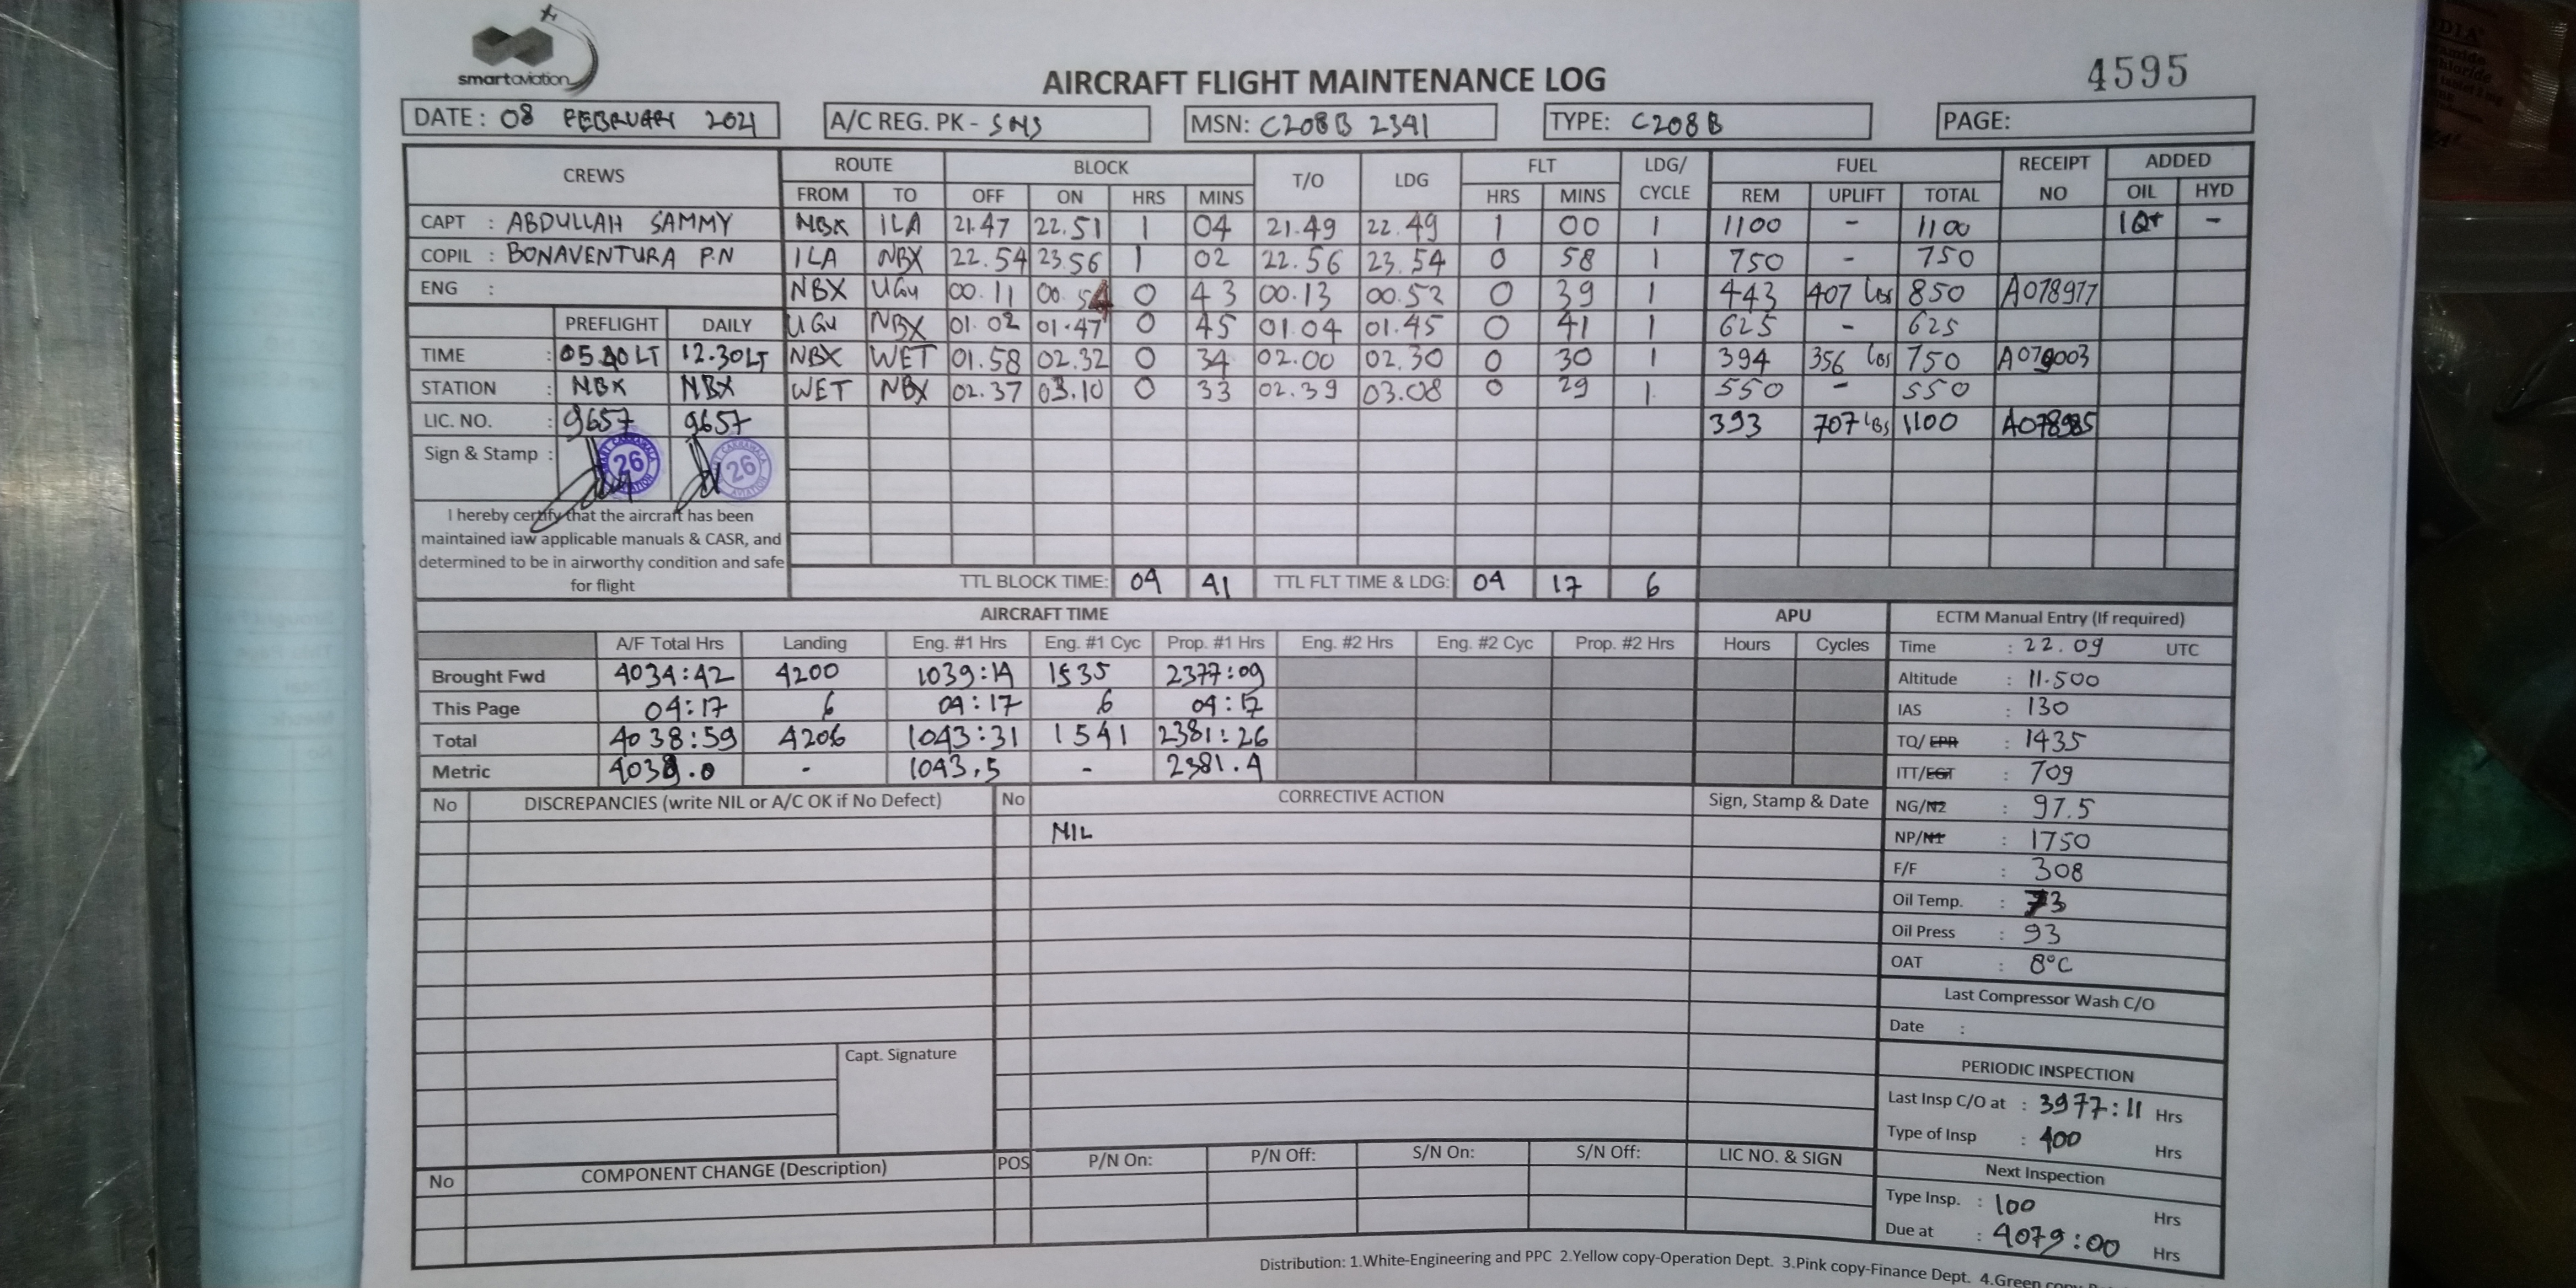 smartaviation
AIRCRAFT FLIGHT MAINTENANCE LOG
4595
DATE : 08 FEBRUARI 2021 A/C REG. PK - SNS MSN: C208B 2341 TYPE: C208B PAGE:
CREWS ROUTE BLOCK T/O LDG FLT LDG/ CYCLE FUEL RECEIPT NO ADDED
FROM TO OFF ON HRS MINS HRS MINS REM UPLIFT TOTAL OIL HYD
CAPT : ABDULLAH SAMMY NBX ILA 21.47 22.51 1 04 21.49 22.49 1 00 1 1100 - 1100 1Qt -
COPIL : BONAVENTURA P.N ILA NBX 22.54 23.56 1 02 22.56 23.54 0 58 1 750 - 750
ENG : NBX UGU 00.11 00.54 0 43 00.13 00.52 0 39 1 443 407 lbs 850 A078977
PREFLIGHT DAILY UGU NBX 01.02 01.47 0 45 01.04 01.45 0 41 1 625 - 625
TIME : 05.40 LT 12.30 LT NBX WET 01.58 02.32 0 34 02.00 02.30 0 30 1 394 356 lbs 750 A079003
STATION : NBX NBX WET NBX 02.37 03.10 0 33 02.39 03.08 0 29 1 550 - 550
LIC. NO. : 9657 9657 393 707 lbs 1100 A078985
Sign & Stamp : 26 26
I hereby certify that the aircraft has been
maintained iaw applicable manuals & CASR, and
determined to be in airworthy condition and safe
for flight
TTL BLOCK TIME: 04 41 TTL FLT TIME & LDG: 04 17 6
AIRCRAFT TIME APU ECTM Manual Entry (If required)
A/F Total Hrs Landing Eng. #1 Hrs Eng. #1 Cyc Prop. #1 Hrs Eng. #2 Hrs Eng. #2 Cyc Prop. #2 Hrs Hours Cycles
Time : 22.09 UTC
Brought Fwd 4034:42 4200 1039:14 1535 2377:09
Altitude : 11.500
This Page 04:17 6 04:17 6 04:17
IAS : 130
Total 4038:59 4206 1043:31 1541 2381:26
TQ/EPR : 1435
Metric 4039.0 - 1043.5 - 2381.4
ITT/EGT : 709
No DISCREPANCIES (write NIL or A/C OK if No Defect) No CORRECTIVE ACTION Sign, Stamp & Date
NG/N2 : 97.5
NIL
NP/N1 : 1750
F/F : 308
Oil Temp. : 73
Oil Press : 93
OAT : 8°C
Last Compressor Wash C/O
Date :
Capt. Signature
PERIODIC INSPECTION
Last Insp C/O at : 3977:11 Hrs
Type of Insp : 400 Hrs
No COMPONENT CHANGE (Description) POS P/N On: P/N Off: S/N On: S/N Off: LIC NO. & SIGN
Next Inspection
Type Insp. : 100 Hrs
Due at : 4079:00 Hrs
Distribution: 1.White-Engineering and PPC 2.Yellow copy-Operation Dept. 3.Pink copy-Finance Dept. 4.Green